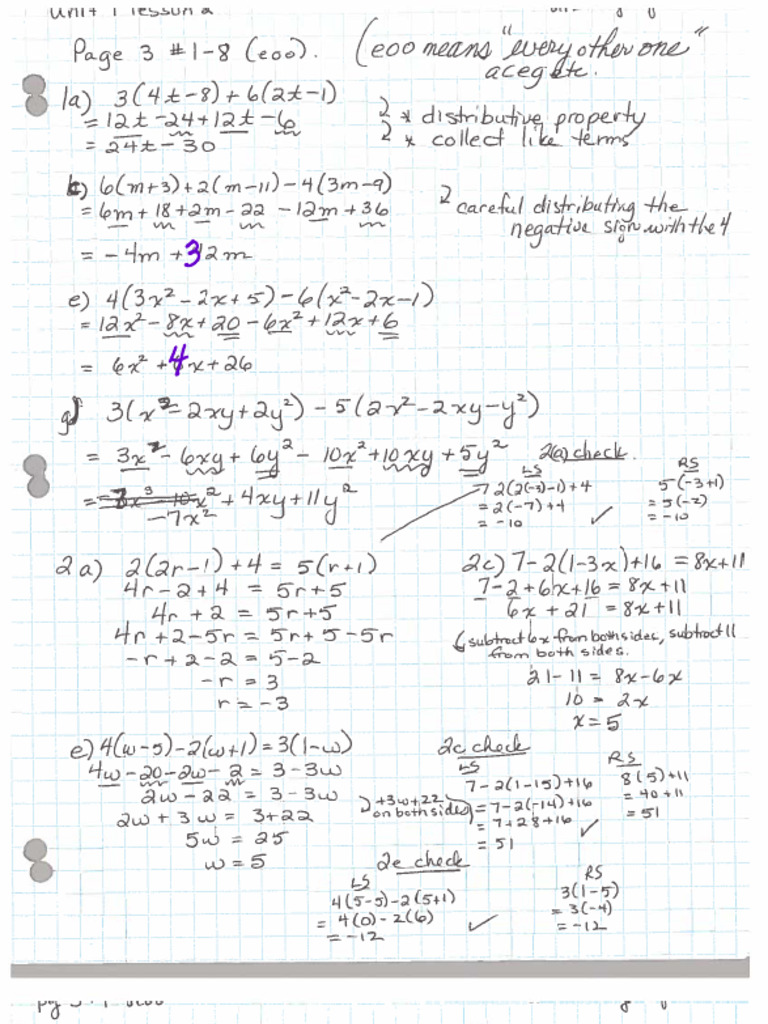 Unit 1 lesson 2
Page 3 #1-8 (eoo). (eoo means "every other one"
a c e g etc.
1a) 3(4t-8)+6(2t-1)
= 12t-24+12t-6
= 24t-30
2 * distributive property
2 * collect like terms
c) 6(m+3)+2(m-11)-4(3m-9)
= 6m+18+2m-22-12m+36
= -4m+32m
2 careful distributing the
negative sign with the 4
e) 4(3x²-2x+5)-6(x²-2x-1)
= 12x²-8x+20-6x²+12x+6
= 6x²+4x+26
g) 3(x²-2xy+2y²)-5(2x²-2xy-y²)
= 3x²-6xy+6y²-10x²+10xy+5y²
= -7x²+4xy+11y²
2(a) check.
LS
2(2(-3)-1)+4
= 2(-7)+4
= -10
RS
5(-3+1)
= 5(-2)
= -10
✓
2a) 2(2r-1)+4 = 5(r+1)
4r-2+4 = 5r+5
4r+2 = 5r+5
4r+2-5r = 5r+5-5r
-r+2-2 = 5-2
-r = 3
r = -3
2c) 7-2(1-3x)+16 = 8x+11
7-2+6x+16 = 8x+11
6x+21 = 8x+11
subtract 6x from both sides, subtract 11
from both sides.
21-11 = 8x-6x
10 = 2x
x = 5
e) 4(w-5)-2(w+1) = 3(1-w)
4w-20-2w-2 = 3-3w
2w-22 = 3-3w
+3w+22
on both sides
2w+3w = 3+22
5w = 25
w = 5
2c check
LS
7-2(1-15)+16
= 7-2(-14)+16
= 7+28+16
= 51
RS
8(5)+11
= 40+11
= 51
✓
2e check
LS
4(5-5)-2(5+1)
= 4(0)-2(6)
= -12
RS
3(1-5)
= 3(-4)
= -12
✓